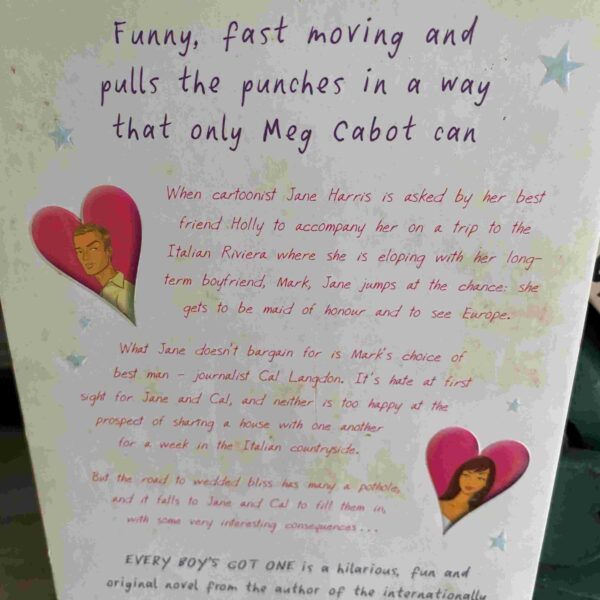 Funny, fast moving and
pulls the punches in a way
that only Meg Cabot can
When cartoonist Jane Harris is asked by her best
friend Holly to accompany her on a trip to the
Italian Riviera where she is eloping with her long-
term boyfriend, Mark, Jane jumps at the chance: she
gets to be maid of honour and to see Europe.
What Jane doesn't bargain for is Mark's choice of
best man – journalist Cal Langdon. It's hate at first
sight for Jane and Cal, and neither is too happy at the
prospect of sharing a house with one another
for a week in the Italian countryside.
But the road to wedded bliss has many a pothole,
and it falls to Jane and Cal to fill them in,
with some very interesting consequences . . .
EVERY BOY'S GOT ONE is a hilarious, fun and
original novel from the author of the internationally